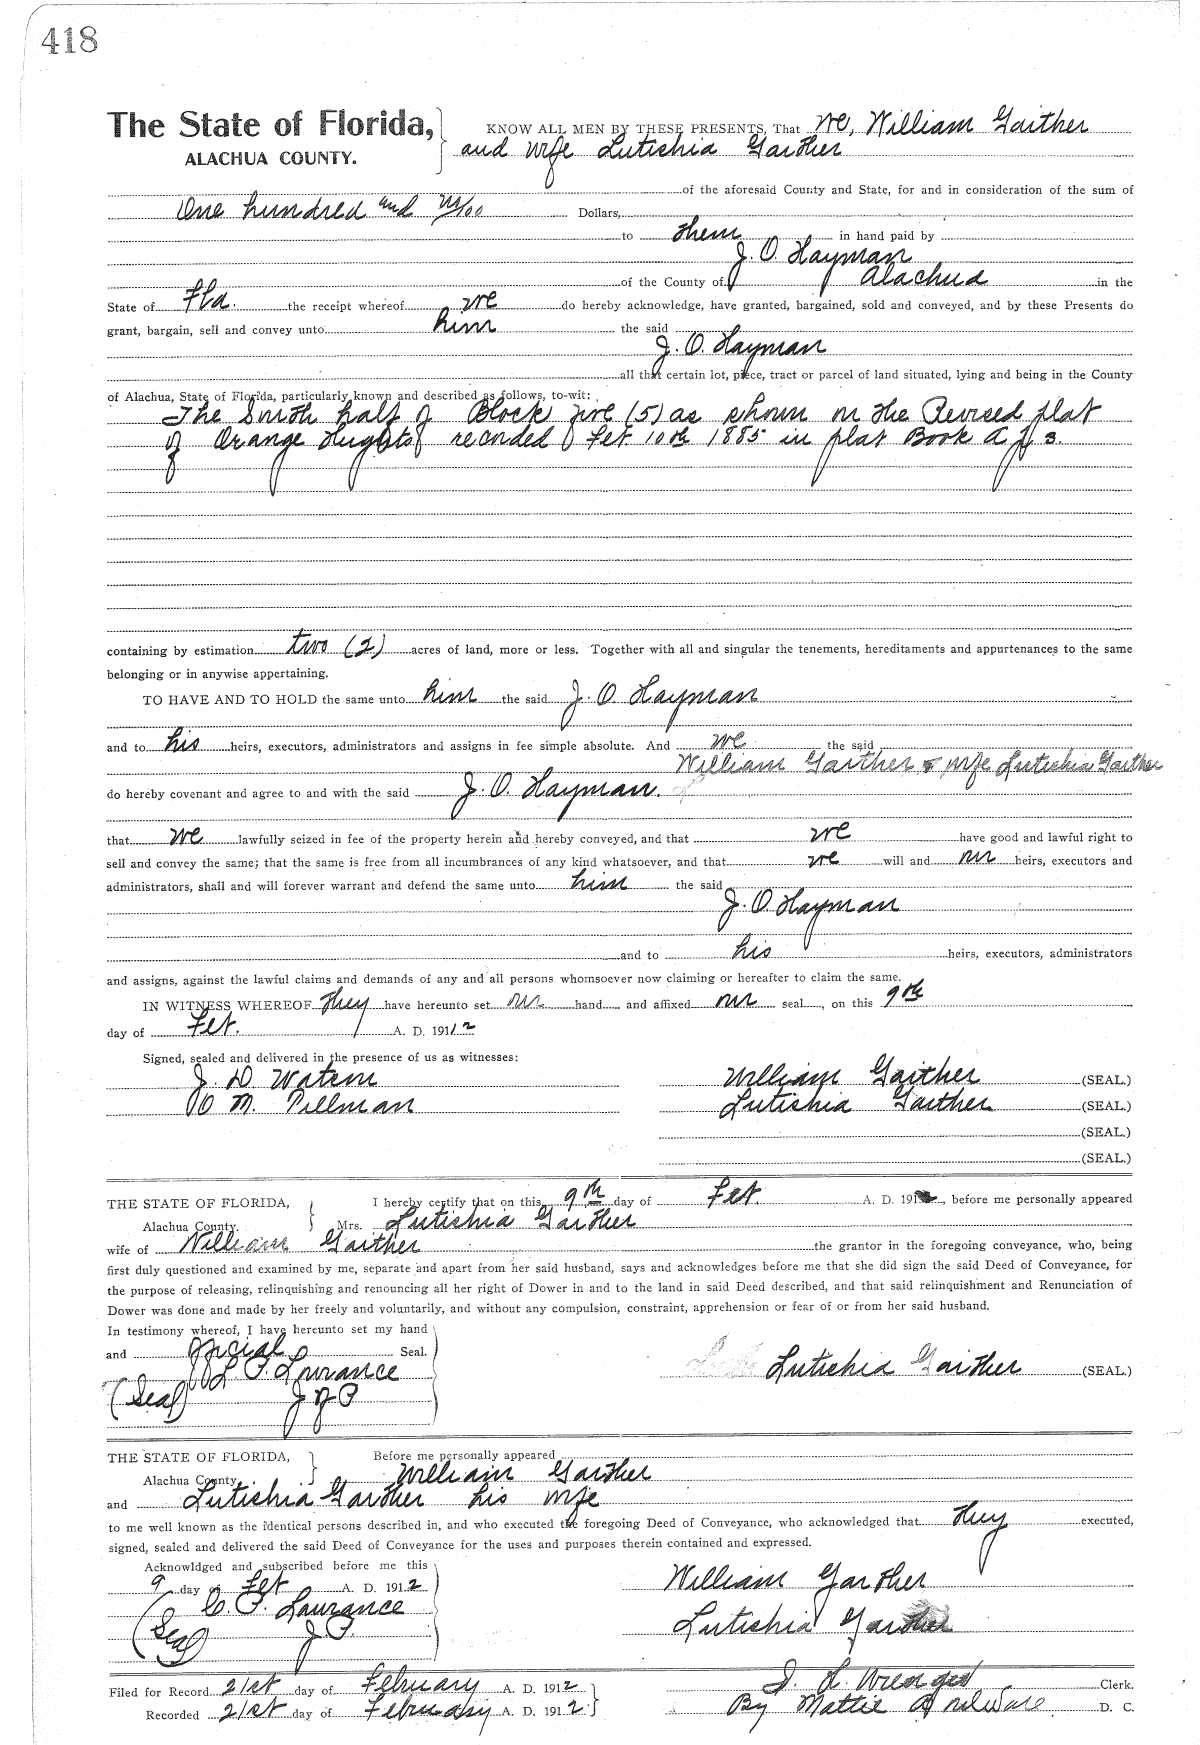 418
The State of Florida,
ALACHUA COUNTY.
KNOW ALL MEN BY THESE PRESENTS, That We, William Gaither
and wife Lutishia Gaither
of the aforesaid County and State, for and in consideration of the sum of
One hundred and no/100 Dollars,
to them in hand paid by
J. O. Hayman
of the County of Alachua in the
State of Fla. the receipt whereof we do hereby acknowledge, have granted, bargained, sold and conveyed, and by these Presents do
grant, bargain, sell and convey unto him the said
J. O. Hayman
all that certain lot, piece, tract or parcel of land situated, lying and being in the County
of Alachua, State of Florida, particularly known and described as follows, to-wit:
The South half of Block five (5) as shown on the Revised plat
of Orange Hughts recorded Feb 10th 1885 in plat Book A 3.
containing by estimation two (2) acres of land, more or less. Together with all and singular the tenements, hereditaments and appurtenances to the same
belonging or in anywise appertaining.
TO HAVE AND TO HOLD the same unto him the said J. O. Hayman
and to his heirs, executors, administrators and assigns in fee simple absolute. And we the said
William Gaither & wife Lutishia Gaither
do hereby covenant and agree to and with the said J. O. Hayman.
that we lawfully seized in fee of the property herein and hereby conveyed, and that we have good and lawful right to
sell and convey the same; that the same is free from all incumbrances of any kind whatsoever, and that we will and our heirs, executors and
administrators, shall and will forever warrant and defend the same unto him the said
J. O. Hayman
and to his heirs, executors, administrators
and assigns, against the lawful claims and demands of any and all persons whomsoever now claiming or hereafter to claim the same.
IN WITNESS WHEREOF they have hereunto set our hand and affixed our seal, on this 9th
day of Feb. A. D. 1912
Signed, sealed and delivered in the presence of us as witnesses:
J. D. Watson William Gaither (SEAL.)
M. Tillman Lutishia Gaither (SEAL.)
(SEAL.)
(SEAL.)
THE STATE OF FLORIDA, I hereby certify that on this 9th day of Feb. A. D. 191, before me personally appeared
Alachua County. Mrs. Lutishia Gaither
wife of William Gaither the grantor in the foregoing conveyance, who, being
first duly questioned and examined by me, separate and apart from her said husband, says and acknowledges before me that she did sign the said Deed of Conveyance, for
the purpose of releasing, relinquishing and renouncing all her right of Dower in and to the land in said Deed described, and that said relinquishment and Renunciation of
Dower was done and made by her freely and voluntarily, and without any compulsion, constraint, apprehension or fear of or from her said husband.
In testimony whereof, I have hereunto set my hand
and official Seal.
P. Lourance Lutishia Gaither (SEAL.)
(Seal) J of P
THE STATE OF FLORIDA, Before me personally appeared
Alachua County. William Gaither
and Lutishia Gaither his wife
to me well known as the identical persons described in, and who executed the foregoing Deed of Conveyance, who acknowledged that they executed,
signed, sealed and delivered the said Deed of Conveyance for the uses and purposes therein contained and expressed.
Acknowldged and subscribed before me this
9 day of Feb A. D. 1912 William Gaither
P. Laurance
(Seal) J. P. Lutishia Gaither
Filed for Record 21st day of February A. D. 1912 Clerk.
Recorded 21st day of February A. D. 1912 By Mattie D. C.